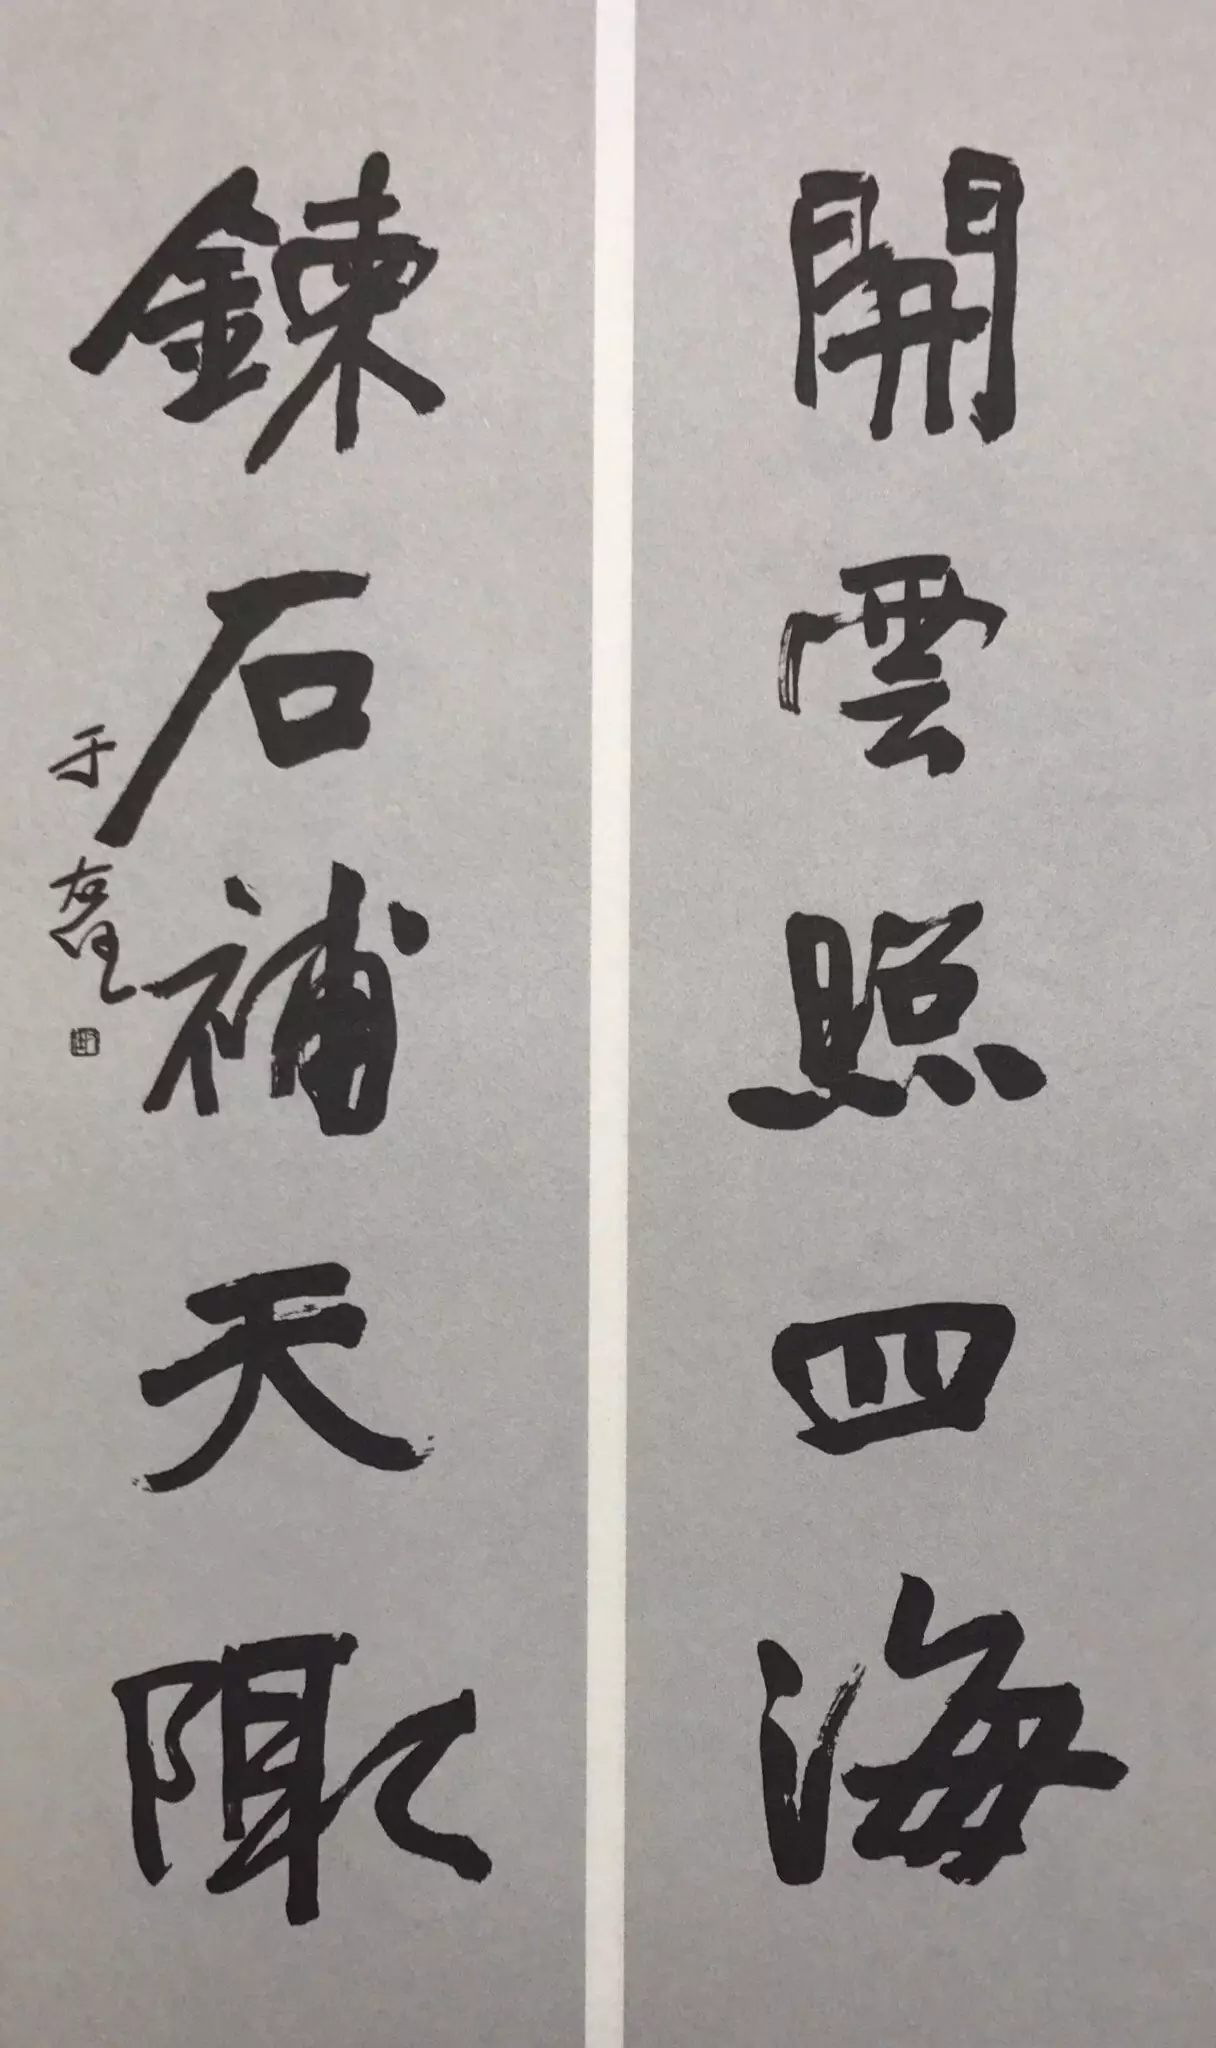 開雲照四海
鍊石補天隙
于右任